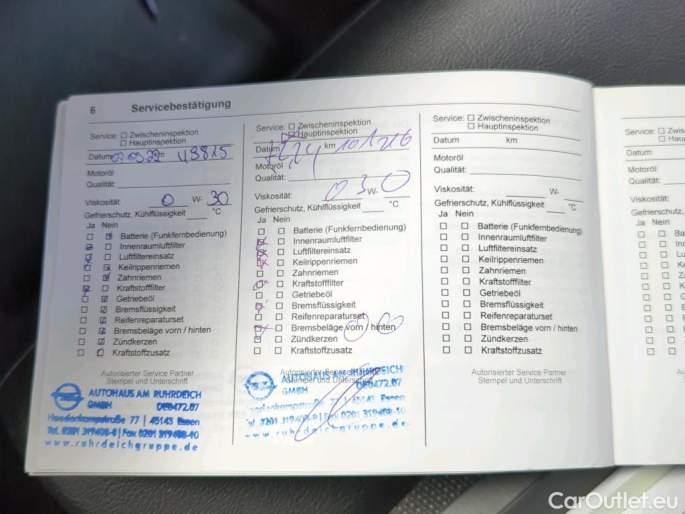 6 Servicebestätigung
Service: Zwischeninspektion
Hauptinspektion
Datum km 48815
Motoröl
Qualität:
Viskosität: 0 W- 30
Gefrierschutz, Kühlflüssigkeit °C
Ja Nein
Batterie (Funkfernbedienung)
Innenraumluftfilter
Luftfiltereinsatz
Keilrippenriemen
Zahnriemen
Kraftstofffilter
Getriebeöl
Bremsflüssigkeit
Reifenreparaturset
Bremsbeläge vorn / hinten
Zündkerzen
Kraftstoffzusatz
Autorisierter Service Partner
Stempel und Unterschrift
AUTOHAUS AM RUHRDEICH
GMBH DE0472.07
77 | 45143 Essen
Tel. 0201 319498-0 | Fax 0201 319498-10
www.ruhrdeichgruppe.de
Service: Zwischeninspektion
Hauptinspektion
Datum km 101216
Motoröl
Qualität:
Viskosität: 0 W- 30
Gefrierschutz, Kühlflüssigkeit °C
Ja Nein
Batterie (Funkfernbedienung)
Innenraumluftfilter
Luftfiltereinsatz
Keilrippenriemen
Zahnriemen
Kraftstofffilter
Getriebeöl
Bremsflüssigkeit
Reifenreparaturset
Bremsbeläge vorn / hinten
Zündkerzen
Kraftstoffzusatz
Autorisierter Service Partner
Stempel und Unterschrift
AUTOHAUS AM RUHRDEICH
GMBH DE0472.07
77 | 45143 Essen
www.ruhrdeichgruppe.de
Service: Zwischeninspektion
Hauptinspektion
Datum km
Motoröl
Qualität:
Viskosität: W-
Gefrierschutz, Kühlflüssigkeit °C
Ja Nein
Batterie (Funkfernbedienung)
Innenraumluftfilter
Luftfiltereinsatz
Keilrippenriemen
Zahnriemen
Kraftstofffilter
Getriebeöl
Bremsflüssigkeit
Reifenreparaturset
Bremsbeläge vorn / hinten
Zündkerzen
Kraftstoffzusatz
Autorisierter Service Partner
Stempel und Unterschrift
Service:
Datum
Motoröl
Qualität:
Viskosität:
Gefrierschutz,
Ja Nein
CarOutlet.eu